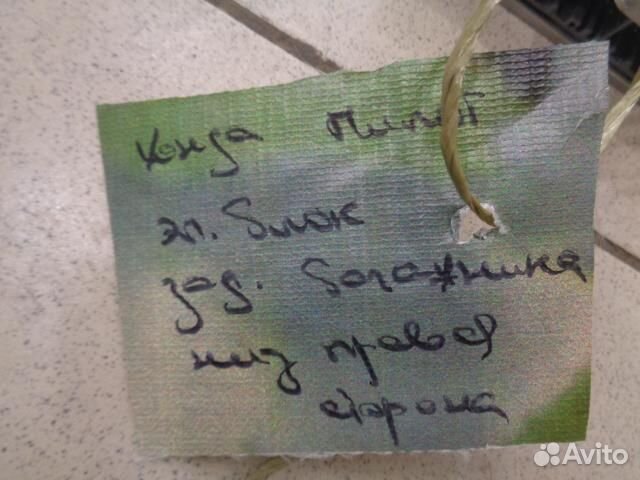 Хонда Пилот
эл. блок
зад. багажника
низ правая
сторона
Avito